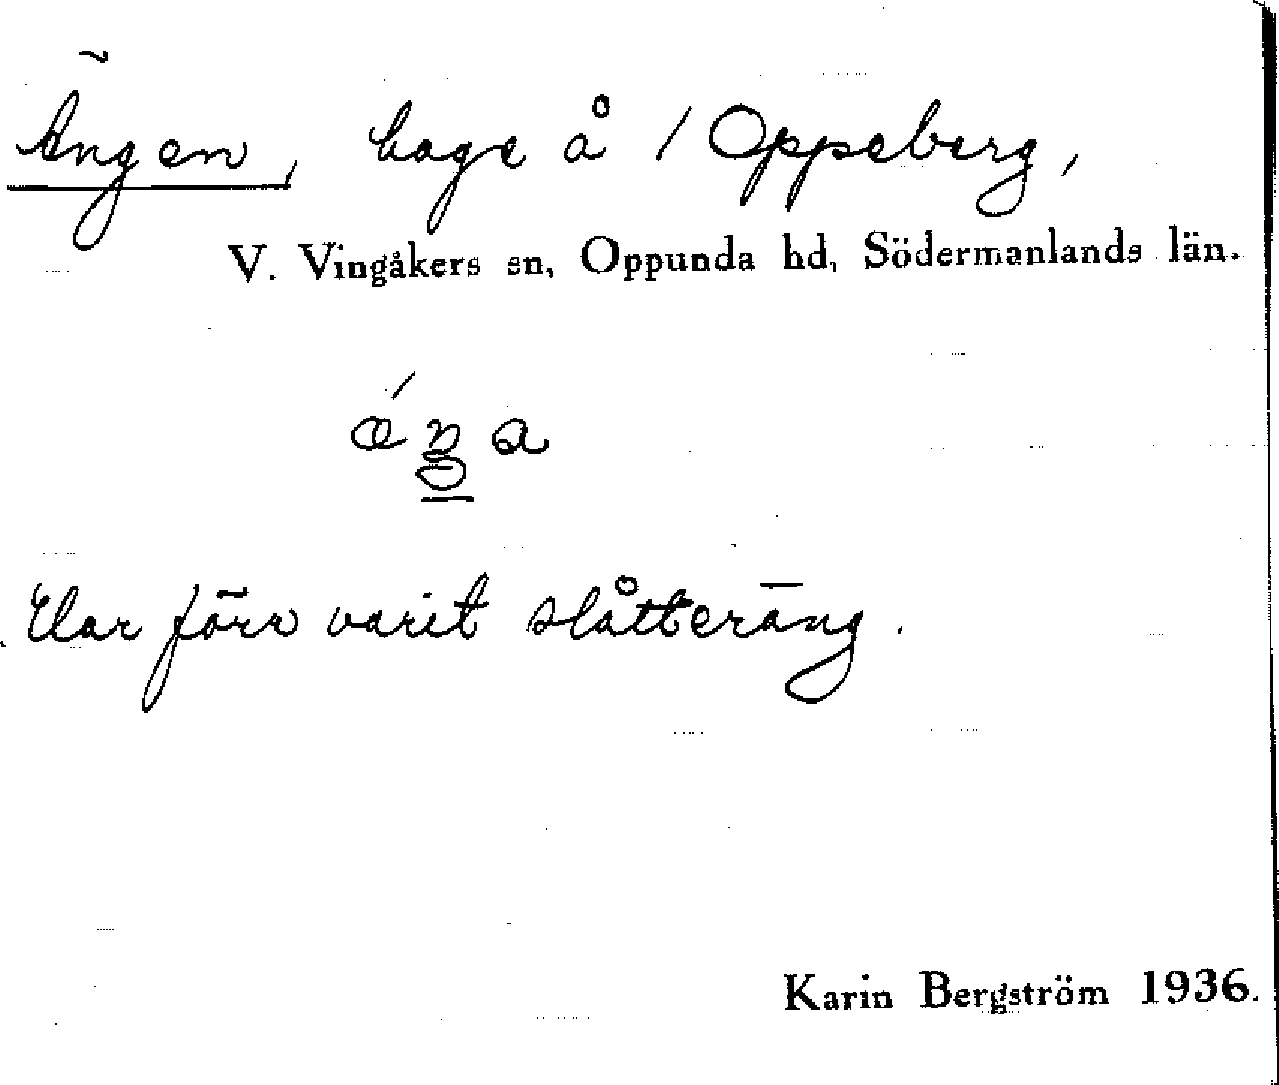 Ängen, hage å / Oppeberg,
V. Vingåkers sn, Oppunda hd, Södermanlands län.
Har förr varit slåtteräng.
Karin Bergström 1936.